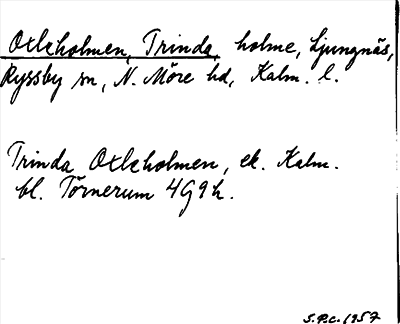 Oxleholmen, Trinda, holme, Ljungnäs,
Ryssby sn, N. Möre hd, Kalm. l.
Trinda Oxleholmen, ek. Kalm.
bl. Törnerum 4G9h.
S.P.C. 1957